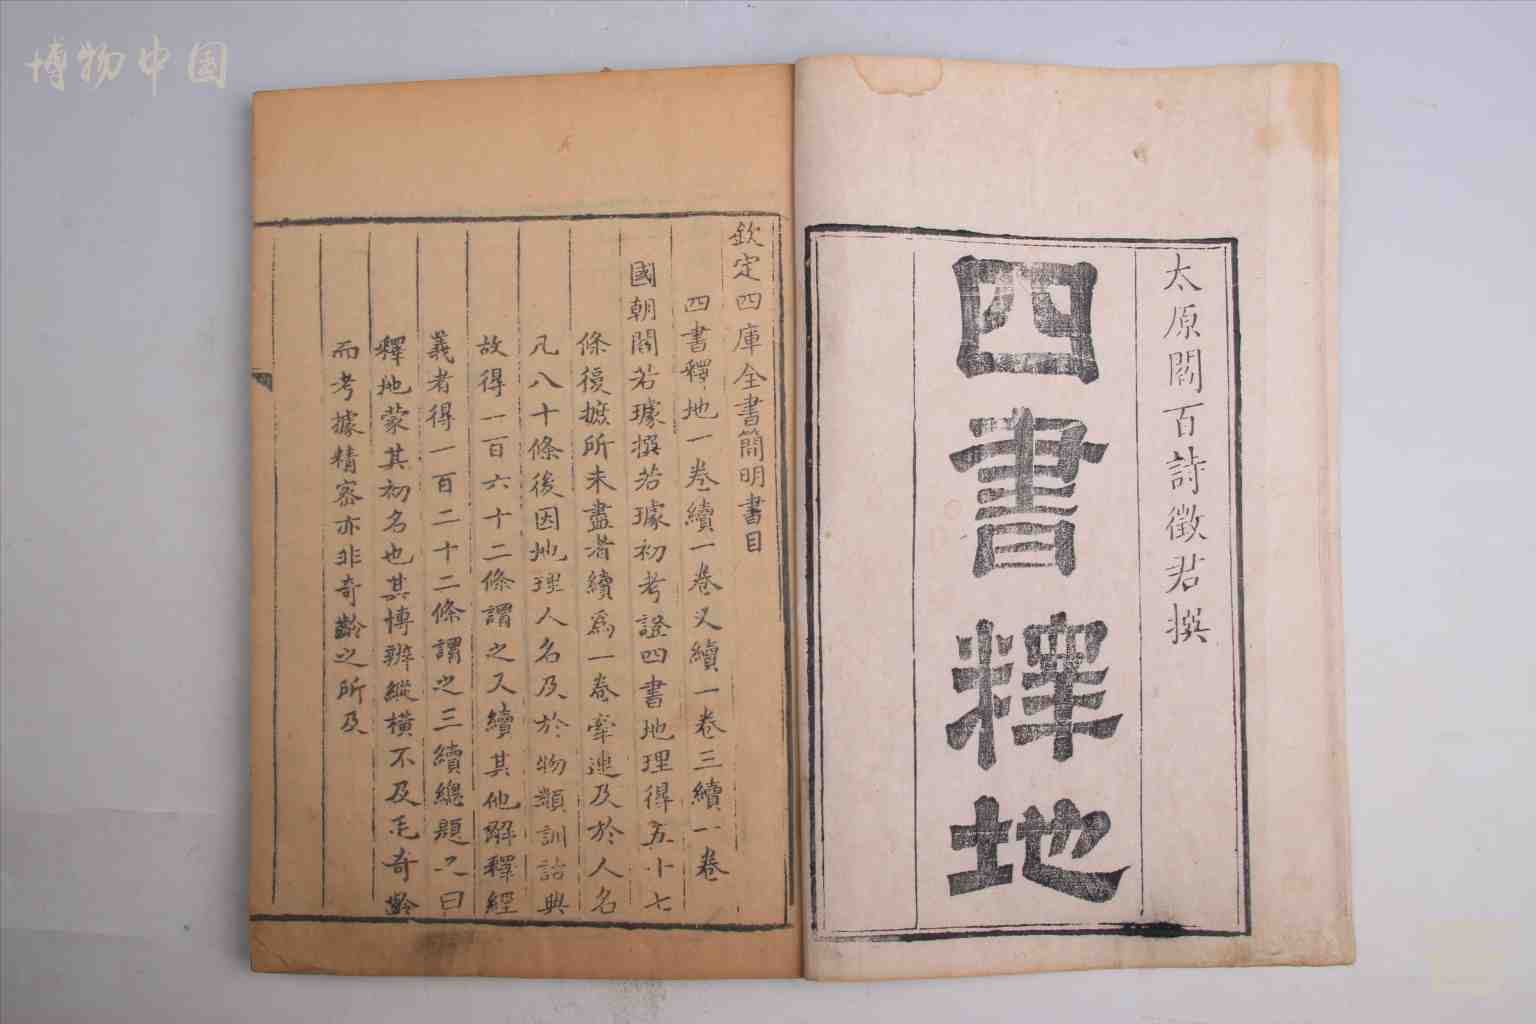 博物中国
太原閻百詩徵君撰
四書釋地
欽定四庫全書簡明書目
四書釋地一卷續一卷又續一卷三續一卷
國朝閻若璩撰若璩初考證四書地理得五十七
條復摭所未盡者續為一卷牽連及於人名
凡八十條後因地理人名及於物類訓詁典
故得一百六十二條謂之又續其他解釋經
義者得一百二十二條謂之三續總題之曰
釋地蒙其初名也其博辨縱橫不及毛奇齡
而考據精密亦非奇齡之所及